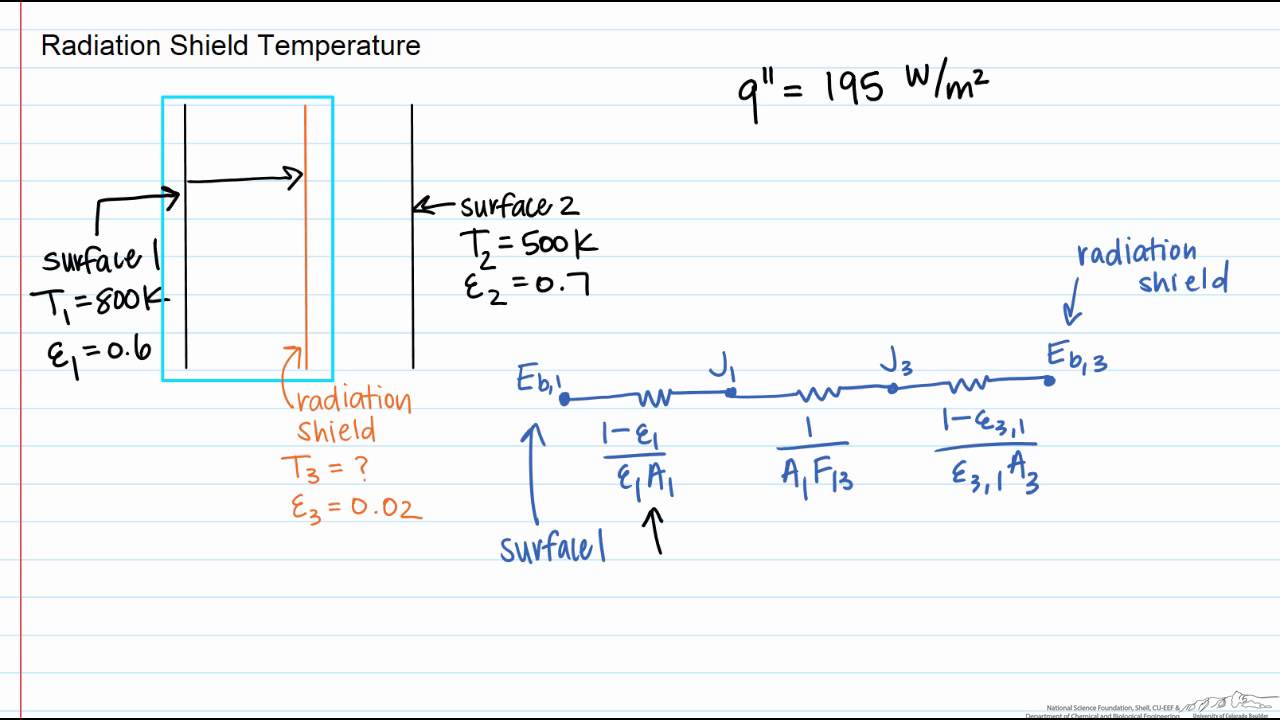 Radiation Shield Temperature
q" = 195 W/m²
surface 1
T₁ = 800K
ε₁ = 0.6
surface 2
T₂ = 500K
ε₂ = 0.7
radiation
shield
T₃ = ?
ε₃ = 0.02
radiation
shield
E_b,1 J₁ J₃ E_b,3
1-ε₁ 1 1-ε₃,₁
ε₁A₁ A₁F₁₃ ε₃,₁A₃
surface 1
National Science Foundation, Shell, CU-EEF &
Department of Chemical and Biological Engineering University of Colorado Boulder